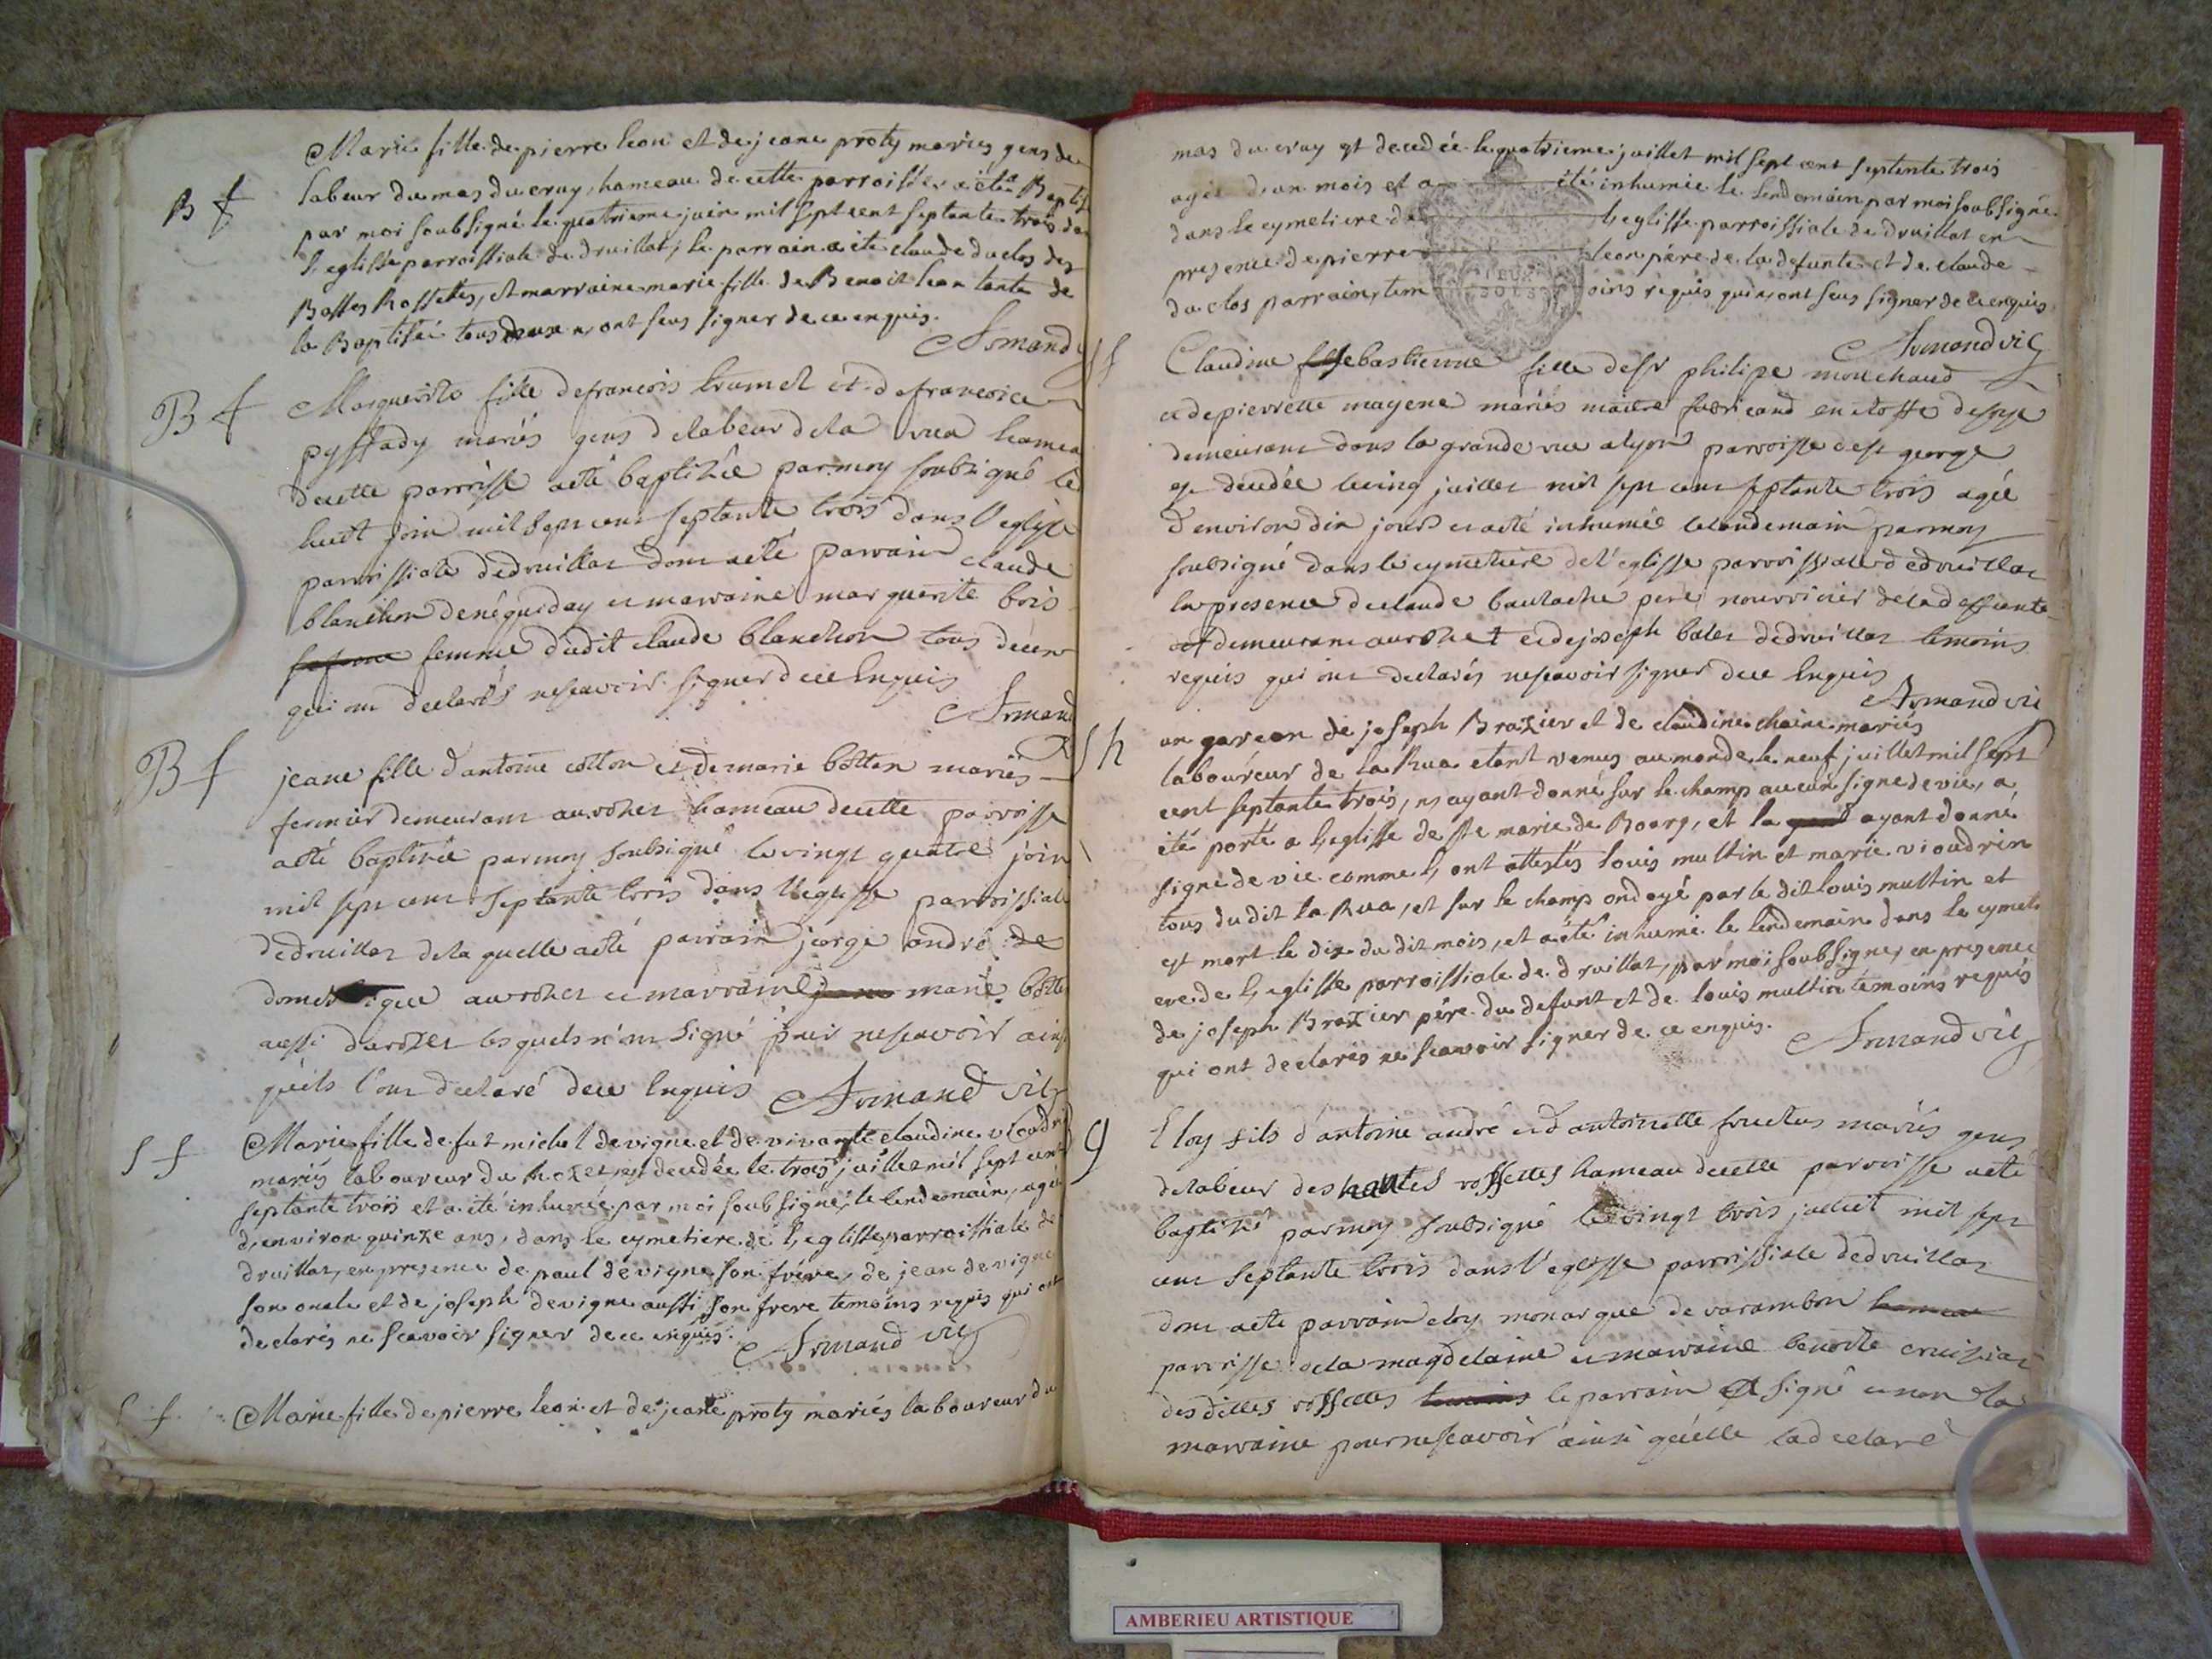 Marie fille de pierre leon et de jeane proty mariés gens de
labeur du mas du cruy, hameau de cette parroisse a été Baptis
B f
par moi soubsigné le quatrieme juin mil sept cent septante trois da
l'eglisse parroissiale de druillat, le parrain a été claude duclos des
Basses Rossettes, et marraine marie fille de Benoit leon tante de
la Baptisée tous deux n'ont seus signer de ce enquis.
Armand
B f
Marguerite fille de francois trumel et de francoise
pyssady mariés gens de labeur de la rua hamea
de cette parroisse a eté baptisée par moy soubsigné le
huit join mil sept cent septante trois dans l'eglisse
parroissiale de druillat dont a eté parrain claude
blanchon de néguiday et marraine marguerite bois
femme dudit claude blanchon tous deux
qui ont declarés ne scavoir signer de ce Enquis
Armand
B f
jeane fille d'antoine cotton et de marie botton mariés
fermier demeurant au rozet hameau de cette parroisse
a eté baptisée par moy soubsigné le vingt quatre join
mil sept cent septante trois dans l'eglisse parroissiale
de druillat de la quelle a eté parrain jeorge andré de
domestique au rozet et marraine marie botto
aussi du rozet lesquels n'ont signé pour ne scavoir ains
qu'ils l'ont declaré de ce Enquis Armand vic
S f
Marie fille de fut michel devigne et de vivante claudine vioudri
mariés laboureur du Rozet est decedée le trois juillet mil sept cent
septante trois et a été inhumée par moi soubsigné, le lendemain, agée
d'environ quinze ans, dans le cymetiere de l'eglisse parroissiale de
druillat, en presence de paul devigne son frère, de jean devigne
son oncle et de joseph devigne aussi son frere temoins requis qui ont
declarés ne scavoir signer de ce enquis. Armand vic
S f
Marie fille de pierre leon et de jeane proty mariés laboureur du
mas du cruy est decedée le quatrieme juillet mil sept cent septente trois
agée d'un mois et a été inhumée le lendemain par moi soubsigné
dans le cymetiere de l'eglisse parroissiale de druillat en
presence de pierre leon père de la defunte et de claude
duclos parrain, temoins requis qui n'ont seus signer de ce enquis
Armand vic
S f
Claudine sebastienne fille de sr philipe monchaud
et de pierrette mayene mariés maitre fabricand en etoffe de soye
demeurant dans la grande rue a lyon parroisse de st george
est decedée le cinq juillet mil sept cent septante trois agée
d'environ dix jours et a eté inhumée le landemain par moy
soubsigné dans le cymetiere de l'eglisse parroissiale de druillat
en presence de claude bautache pere nourricier de la deffunte
demeurant au rozet et de joseph bolet de druillat temoins
requis qui ont declarés ne scavoir signer de ce Enquis
Armand vic
S h
un garcon de joseph Brazier et de claudine chaine mariés
laboureur de la Rua etant venus au monde le neuf juillet mil sept
cent septante trois, n'ayant donné sur le champ aucun signe de vie, a
été porté a l'eglisse de ste marie de Bourg, et la ayant donné
signe de vie comme l'ont attestés louis multin et marie vioudrin
tous du dit la Rua, et sur le champ ondoyé par le dit louis multin et
est mort le dix du dit mois, et a été inhumé le lendemain dans le cymeti
ere de l'eglisse parroissiale de druillat, par moi soubsigné, en presence
de joseph Brazier père du defunt et de louis multin temoins requis
qui ont declarés ne scavoir signer de ce enquis. Armand vic
g
Eloy fils d'antoine andré et d'antoinette fructus mariés gens
de labeur des hautes rossettes hameau de cette parroisse a eté
baptisé par moy soubsigné le vingt trois juillet mil sept
cent septante trois dans l'eglisse parroissiale de druillat
dont a eté parrain eloy monarque de varambon
parroisse de la magdelaine et marraine benoite
desdittes rossettes le parrain a signé et non la
marraine pour ne scavoir ainsi qu'elle l'a declaré
AMBERIEU ARTISTIQUE